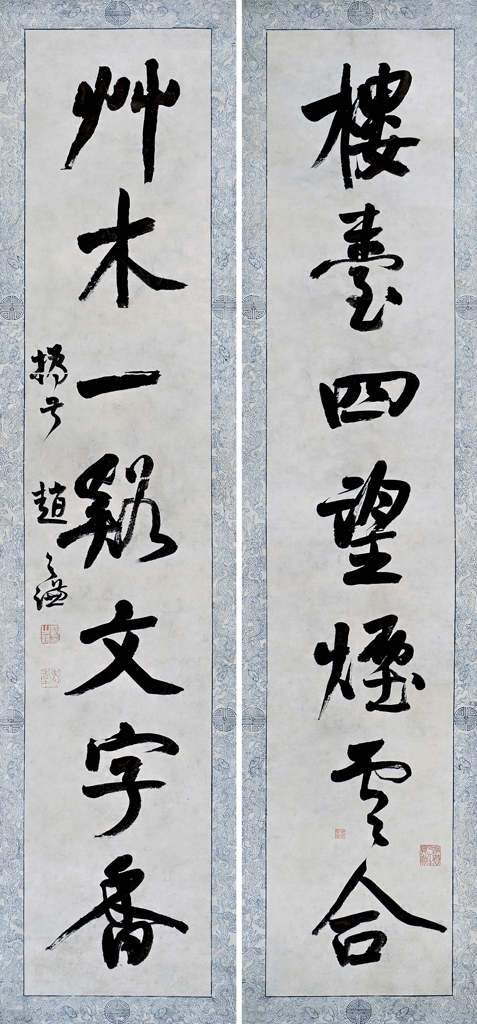 樓臺四望煙雲合
艸木一谿文字香
撝叔趙之謙